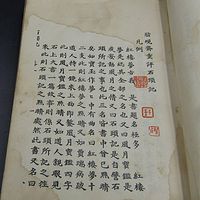 脂硯齋重評石頭記
凡例
紅樓夢旨義 是書題名極多 紅樓
夢是總其全部之名也又曰風月寶鑑是
戒妄動風月之情又曰石頭記是自譬石
頭所記之事也此三名皆書中曾已點睛
矣如寶玉作夢夢中有曲名曰紅樓夢十
二支此則紅樓夢之點睛又如賈瑞病跛
道人持一鏡來上面即鏨風月寶鑑四字
此則風月寶鑑之點睛又如道人親眼見
石上大書一篇故事則係石頭所記之往
來此則石頭記之點睛處然此書又名曰